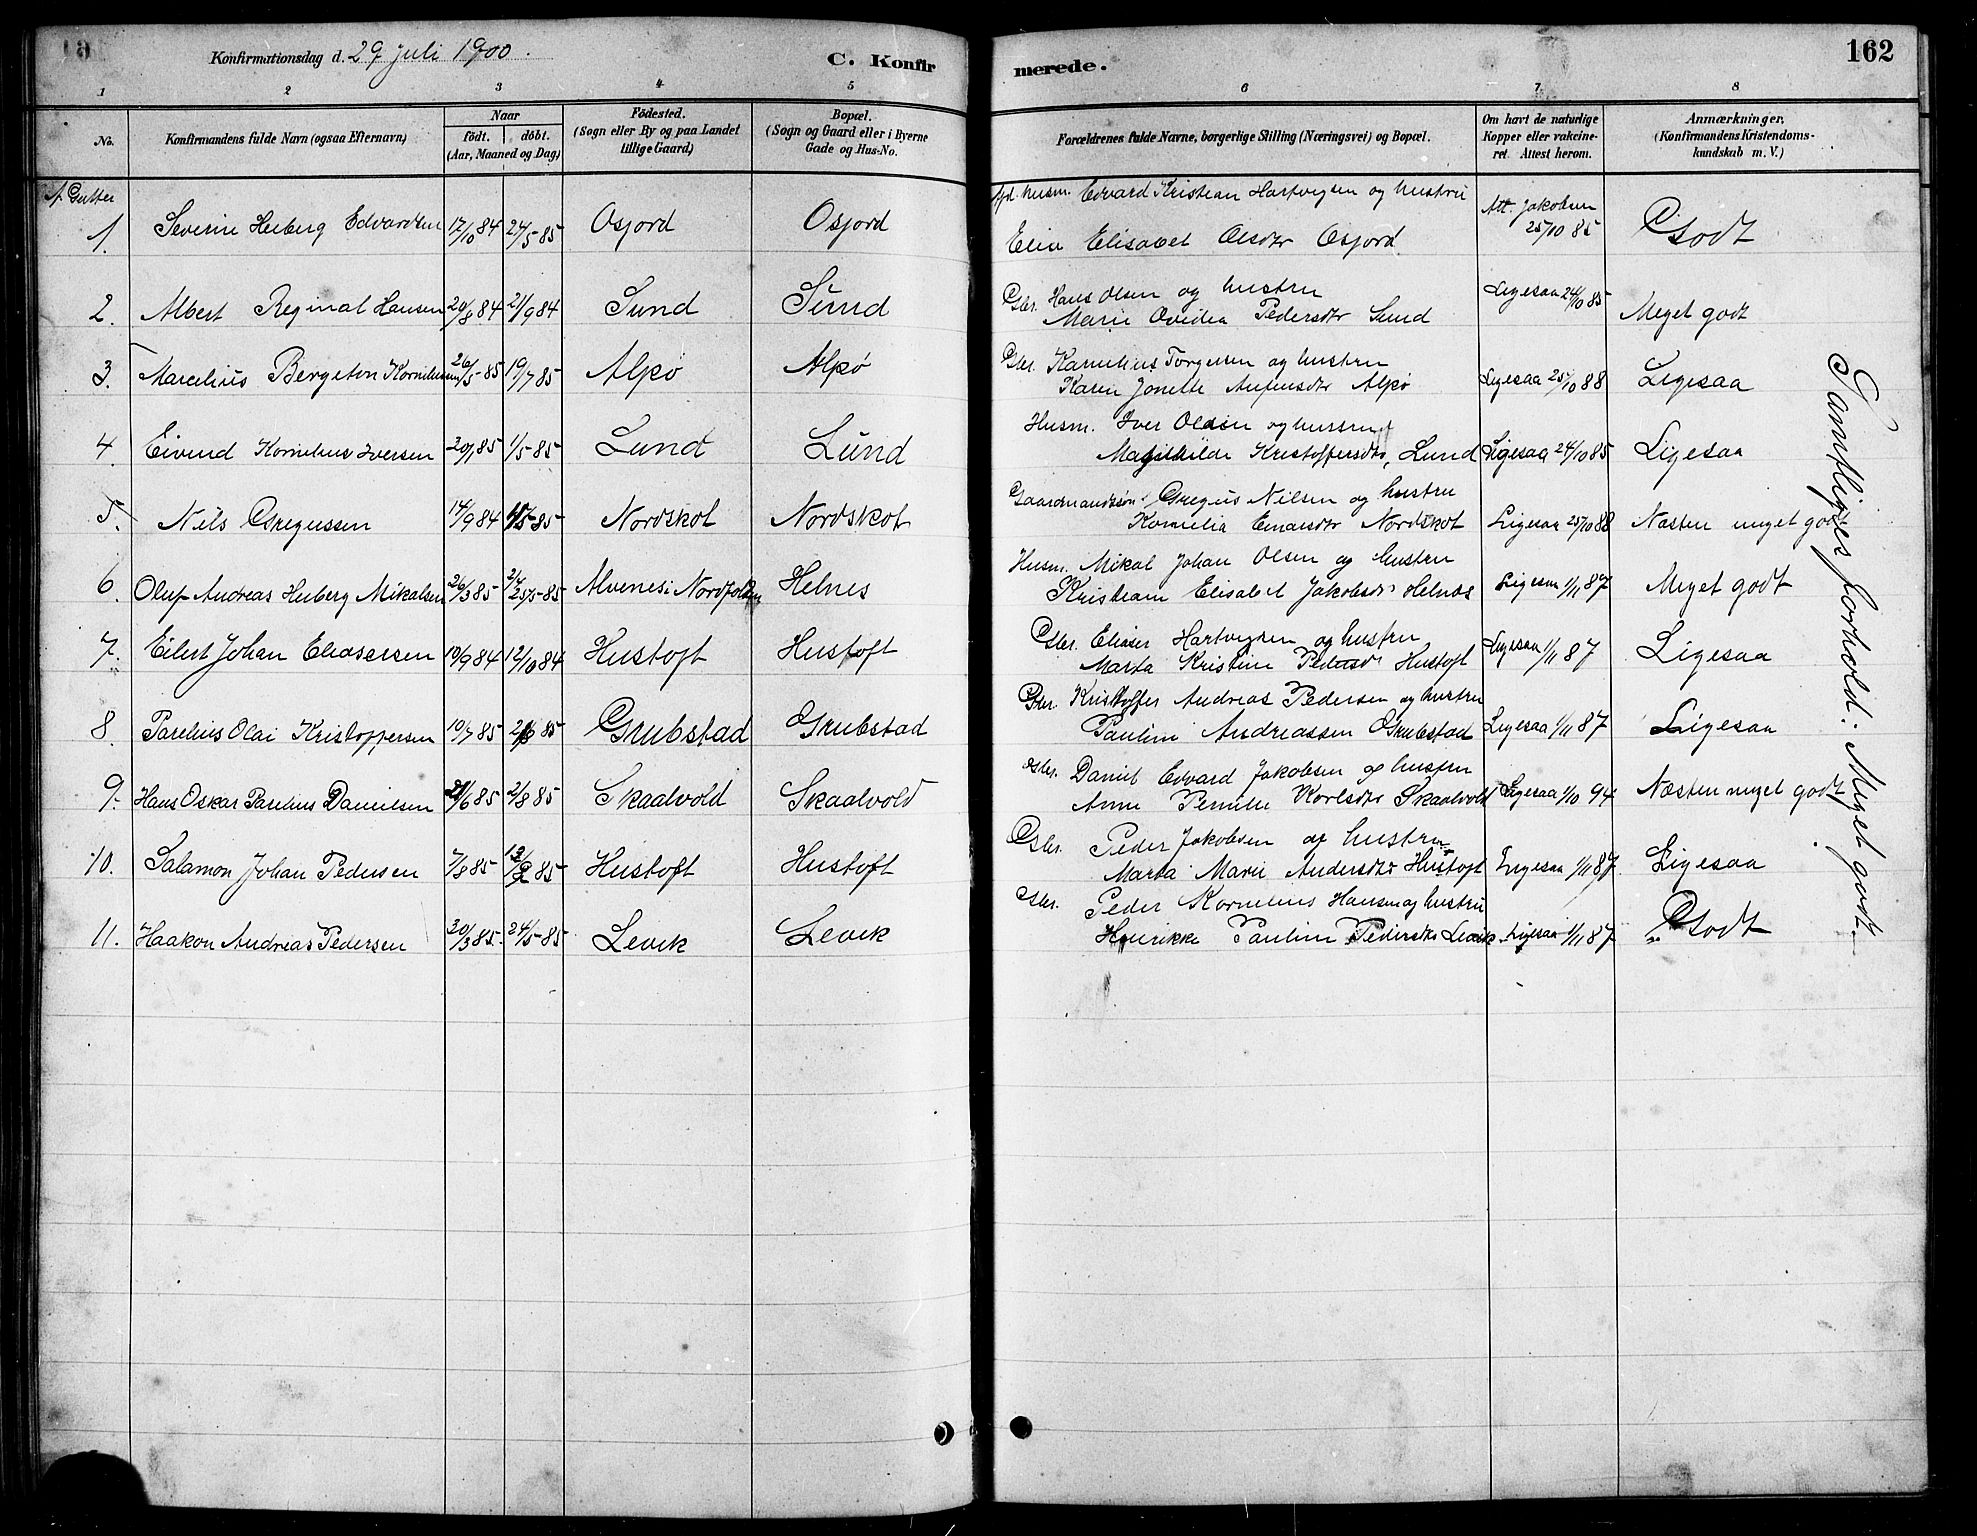 Konfirmationsdag d. 29 Juli 1900. C. Konfirmerede. 162
1 2 3 4 5 6 7 8
No. Konfirmandens fulde Navn (ogsaa Efternavn) Naar födt. döbt. (Aar, Maaned og Dag) Födested. (Sogn eller By og paa Landet tillige Gaard) Bopæl. (Sogn og Gaard eller i Byerne Gade og Hus-No. Forældrenes fulde Navne, borgerlige Stilling (Næringsvei) og Bopæl. Om havt de naturlige Kopper eller vakcineret. Attest herom. Anmærkninger, (Konfirmandens Kristendomskundskab m. V.)
Gutter
husm. Edvard Kristian Hartvigsen og hustru
1. Severin Heiberg Edvardsen 17/10 84 24/5 85 Osfjord Osfjord Elisabet Olsdtr Osfjord Att. Jakobsen 25/10 85 Godt
Gbr. Hans Olsen og hustru
2. Albert Reginal Hansen 20/8 84 21/9 84 Sund Sund Marie Ovidia Pedersdtr Sund Ligesaa 24/10 85 Meget godt
Gbr. Kornelius Torgersen og hustru
3. Marcelius Bergeton Korneliussen 26/5 85 19/7 85 Alpø Alpø Karen Jonette Alpø Ligesaa 25/10 88 Ligesaa
Husm. Iver Olsen og hustru
4. Eivind Kornelius Iversen 20/1 85 1/5 85 Lund Lund Kristoffersdtr, Lund Ligesaa 24/10 85 Ligesaa
Gregus Nilsen og hustru
5. Nils Gregussen 14/9 84 Nordskot Nordskot Kornelia Einarsdtr Nordskot Ligesaa 25/10 88 Næsten meget godt
Husm. Mikal Johan Olsen og hustru
6. Oluf Andreas Heiberg Mikalsen 26/3 85 Alvenes i Nordfolden Helnes Elisabet Jakobsdtr Helnes Ligesaa 1/11 87 Meget godt
Gbr. Eliaser Hartvigsen og hustru
7. Eilert Johan Eliasersen 10/9 84 12/10 84 Hustoft Hustoft Marta Kristine Pedersdtr Hustoft Ligesaa 1/11 87 Ligesaa
Gbr. Kristoffer Andreas Pedersen og hustru
8. Parelius Olai Kristoffersen 19/7 85 Grubstad Grubstad Pauline Andreassen Grubstad Ligesaa 1/11 87 Ligesaa
Gbr. Daniel Edvard Jakobsen og hustru
9. Hans Oskar Parelius Danielsen 2/8 85 Skaalvold Skaalvold Anne Pernille Karlsdtr Skaalvold Ligesaa 1/10 94 Næsten meget godt
Gbr. Peder Jakobsen og hustru
10. Salamon Johan Pedersen 7/8 85 Hustoft Hustoft Marta Marie Andersdtr Hustoft Ligesaa 1/11 87 Ligesaa
Gbr. Peder Kornelius Hansen og hustru
11. Haakon Andreas Pedersen 20/3 85 24/5 85 Levik Levik Henrikke Pauline Pedersdtr Levik Ligesaa 1/11 87 Godt
Samtliges forhold: Meget godt.